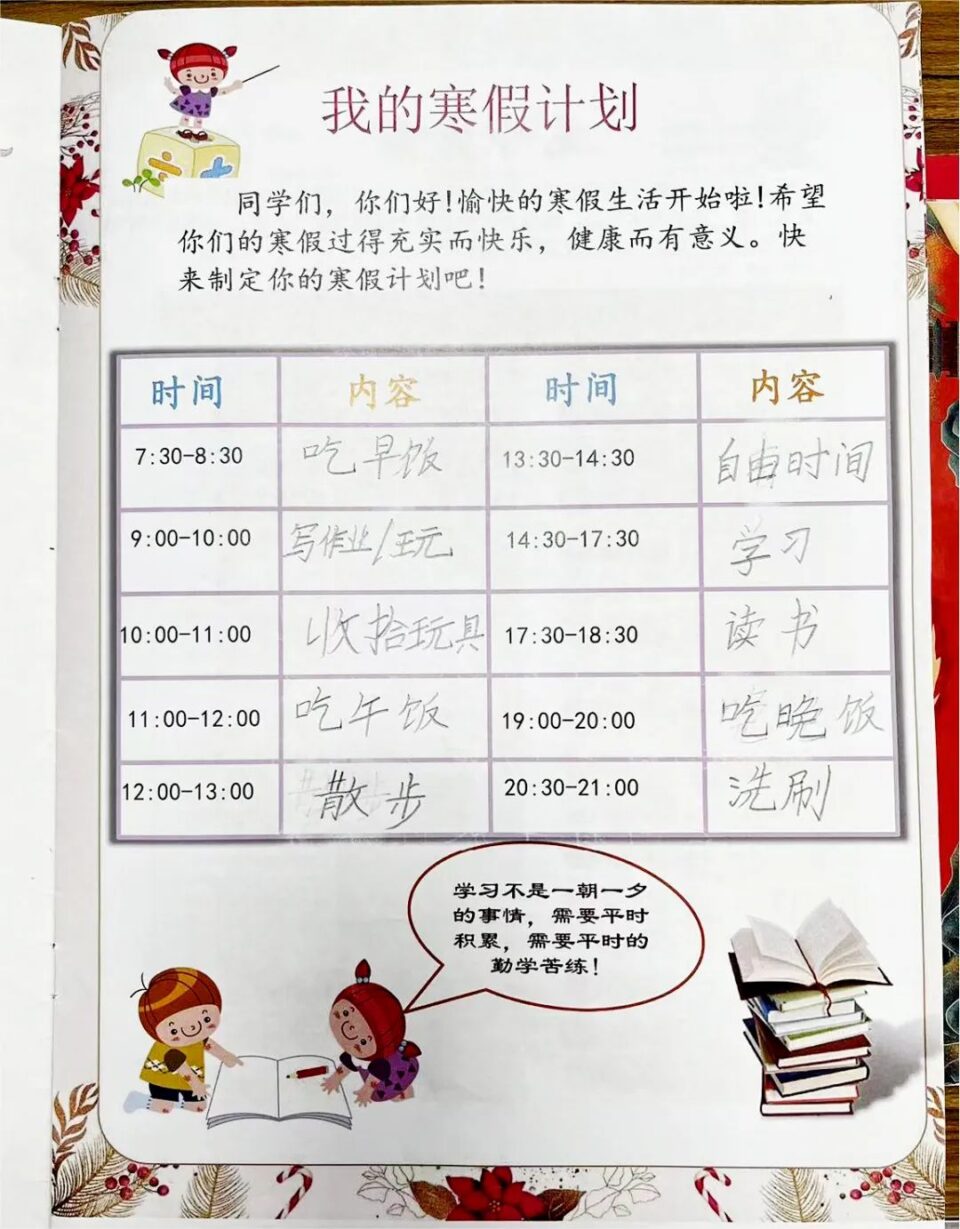 我的寒假计划
同学们，你们好！愉快的寒假生活开始啦！希望
你们的寒假过得充实而快乐，健康而有意义。快
来制定你的寒假计划吧！
时间 内容 时间 内容
7:30-8:30 吃早饭 13:30-14:30 自由时间
9:00-10:00 写作业/玩 14:30-17:30 学习
10:00-11:00 收拾玩具 17:30-18:30 读书
11:00-12:00 吃午饭 19:00-20:00 吃晚饭
12:00-13:00 散步 20:30-21:00 洗刷
学习不是一朝一夕
的事情，需要平时
积累，需要平时的
勤学苦练！